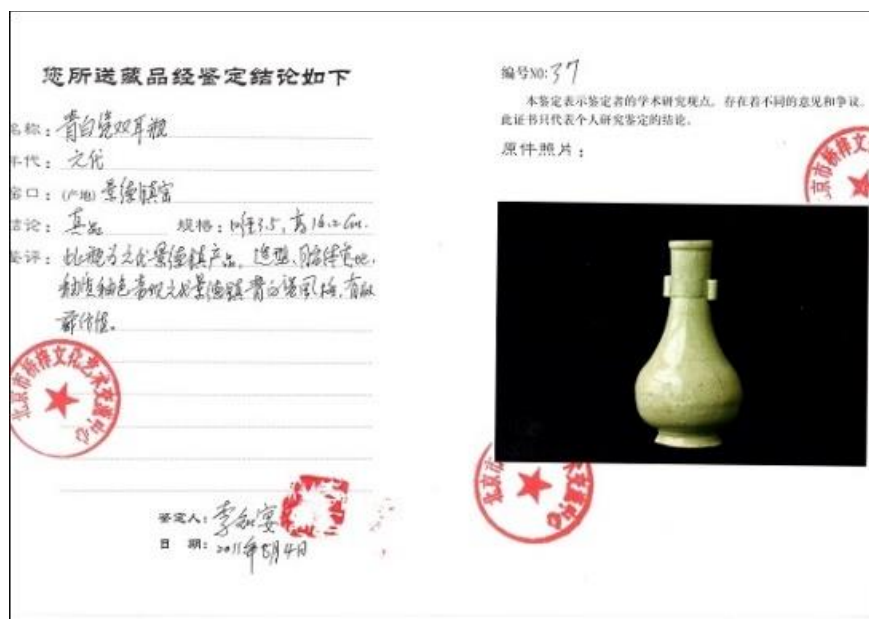 您所送藏品经鉴定结论如下
名称：青白瓷双耳瓶
年代：元代
窑口：(产地)景德镇窑
结论：真品 规格：口径3.5，高16.2cm.
鉴评：此瓶为元代景德镇产品，造型、胎体
釉质釉色表现元代景德镇青白瓷风格，有收
藏价值。
北京市桥梓文化艺术交流中心
鉴定人：李知宴
日期：2011年8月4日
编号NO:37
本鉴定表示鉴定者的学术研究观点，存在着不同的意见和争议。
此证书只代表个人研究鉴定的结论。
原件照片：
京市桥梓文
北京市